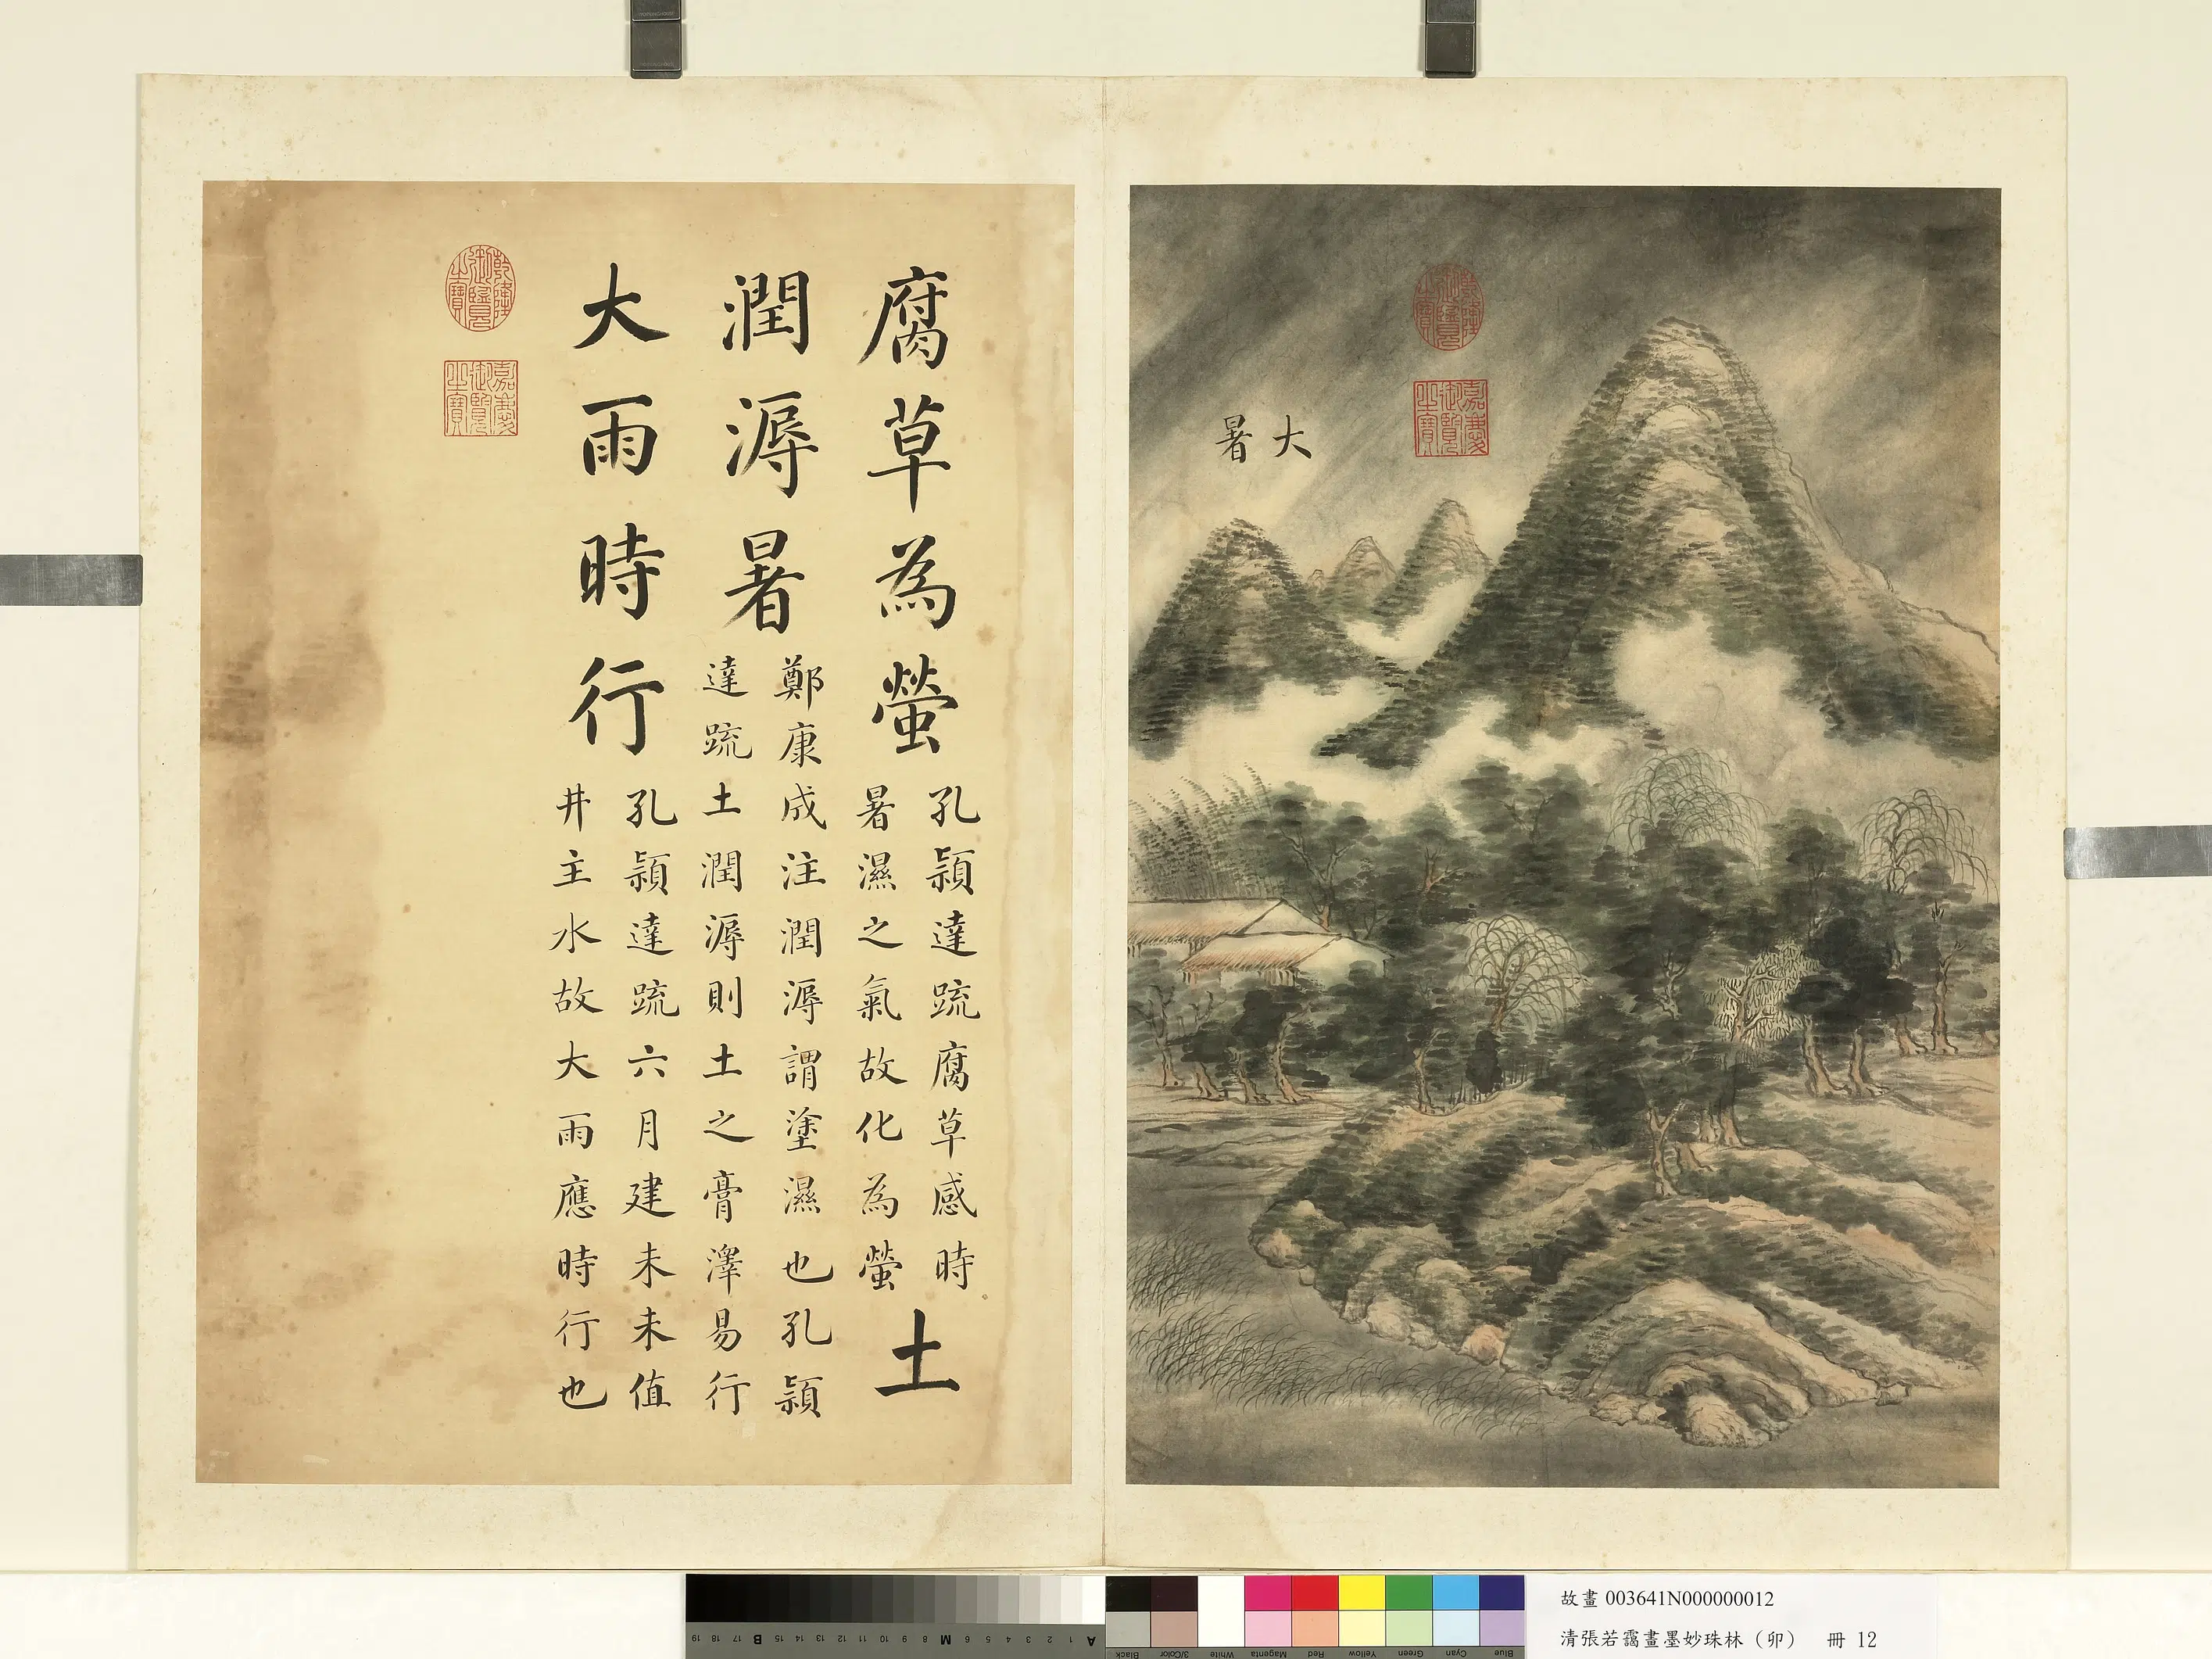 大
暑
乾隆御覽之寶
嘉慶御覽之寶
腐草為螢
孔穎達疏腐草感時
暑濕之氣故化為螢
土
潤溽暑
鄭康成注潤溽謂塗濕也孔穎
達疏土潤溽則土之膏澤易行
大雨時行
孔穎達疏六月建未未值
井主水故大雨應時行也
乾隆御覽之寶
嘉慶御覽之寶
故畫 003641N000000012
清張若靄畫墨妙珠林（卯） 冊 12
A 1 2 3 4 5 6 7 8 M 9 10 11 12 13 14 15 B 17 18 19
Blue Cyan Green Yellow Red Magenta White 3/Color Black